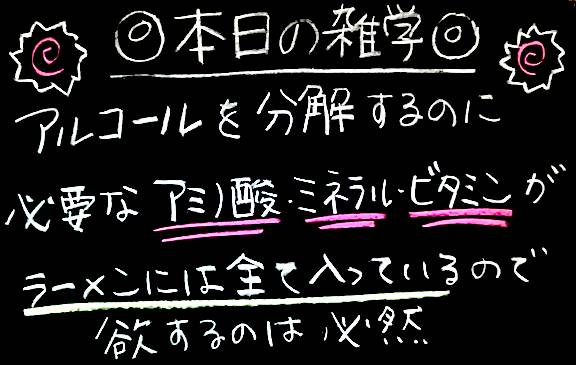 ◎本日の雑学◎
アルコールを分解するのに
必要なアミノ酸・ミネラル・ビタミンが
ラーメンには全て入っているので
欲するのは必然